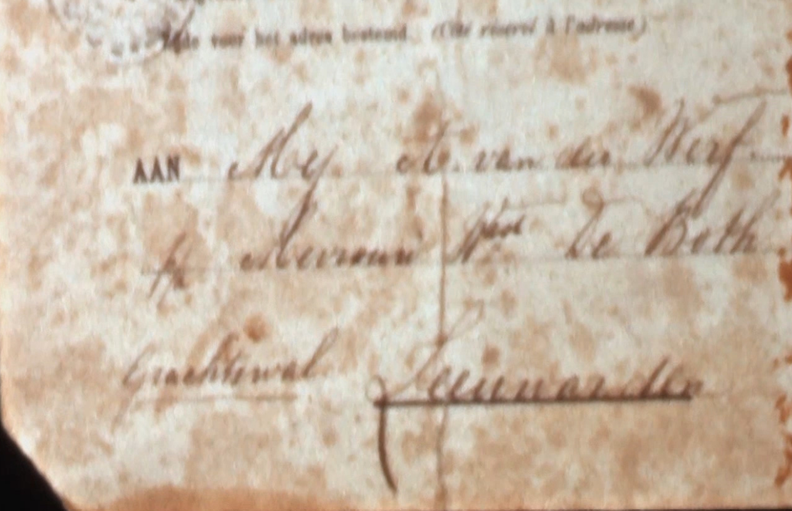 voor het adres bestemd. (Côté réservé à l'adresse)
AAN Mej A. van der Werf
p/a Mevrouw De Both
Grachtswal Leeuwarden